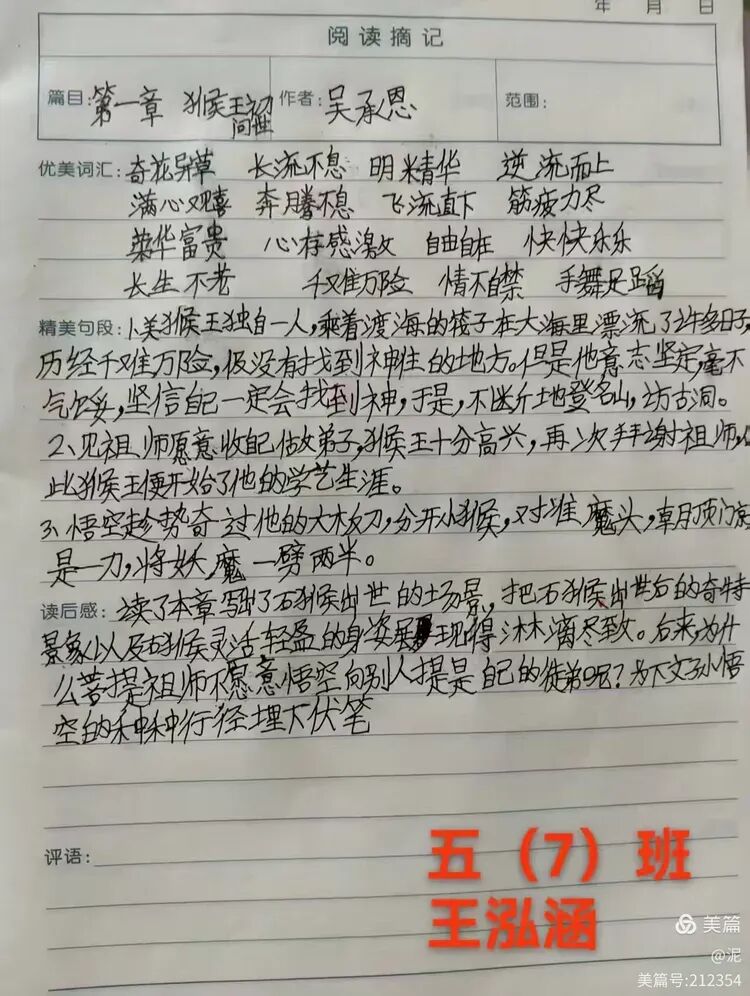 年 月 日
阅读摘记
篇目：第一章 猴王初问世 作者：吴承恩 范围：
优美词汇：奇花异草 长流不息 明精华 逆流而上
满心欢喜 奔腾不息 飞流直下 筋疲力尽
荣华富贵 心存感激 自由自在 快快乐乐
长生不老 千难万险 情不自禁 手舞足蹈
精美句段：1、美猴王独自一人，乘着渡海的筏子在大海里漂流了许多日子，
历经千难万险，仍没有找到神住的地方。但是他意志坚定，毫不
气馁，坚信自己一定会找到神，于是，不断地登名山，访古洞。
2、见祖师愿意收自己做弟子，猴王十分高兴，再次拜谢祖师，
此猴王便开始了他的学艺生涯。
3、悟空趁势夺过他的大板刀，分开小猴，对准魔头，朝顶门
是一刀，将妖魔一劈两半。
读后感：读了本章写出了石猴出世的场景，把石猴出世后的奇特
景象以及石猴灵活轻盈的身姿展现得淋淋漓尽致。后来，为什
么菩提祖师不愿意悟空向别人提是自己的徒弟呢？为下文孙悟
空的种种行径埋下伏笔
评语：
五（7）班
王泓涵
美篇
@泥
美篇号:212354